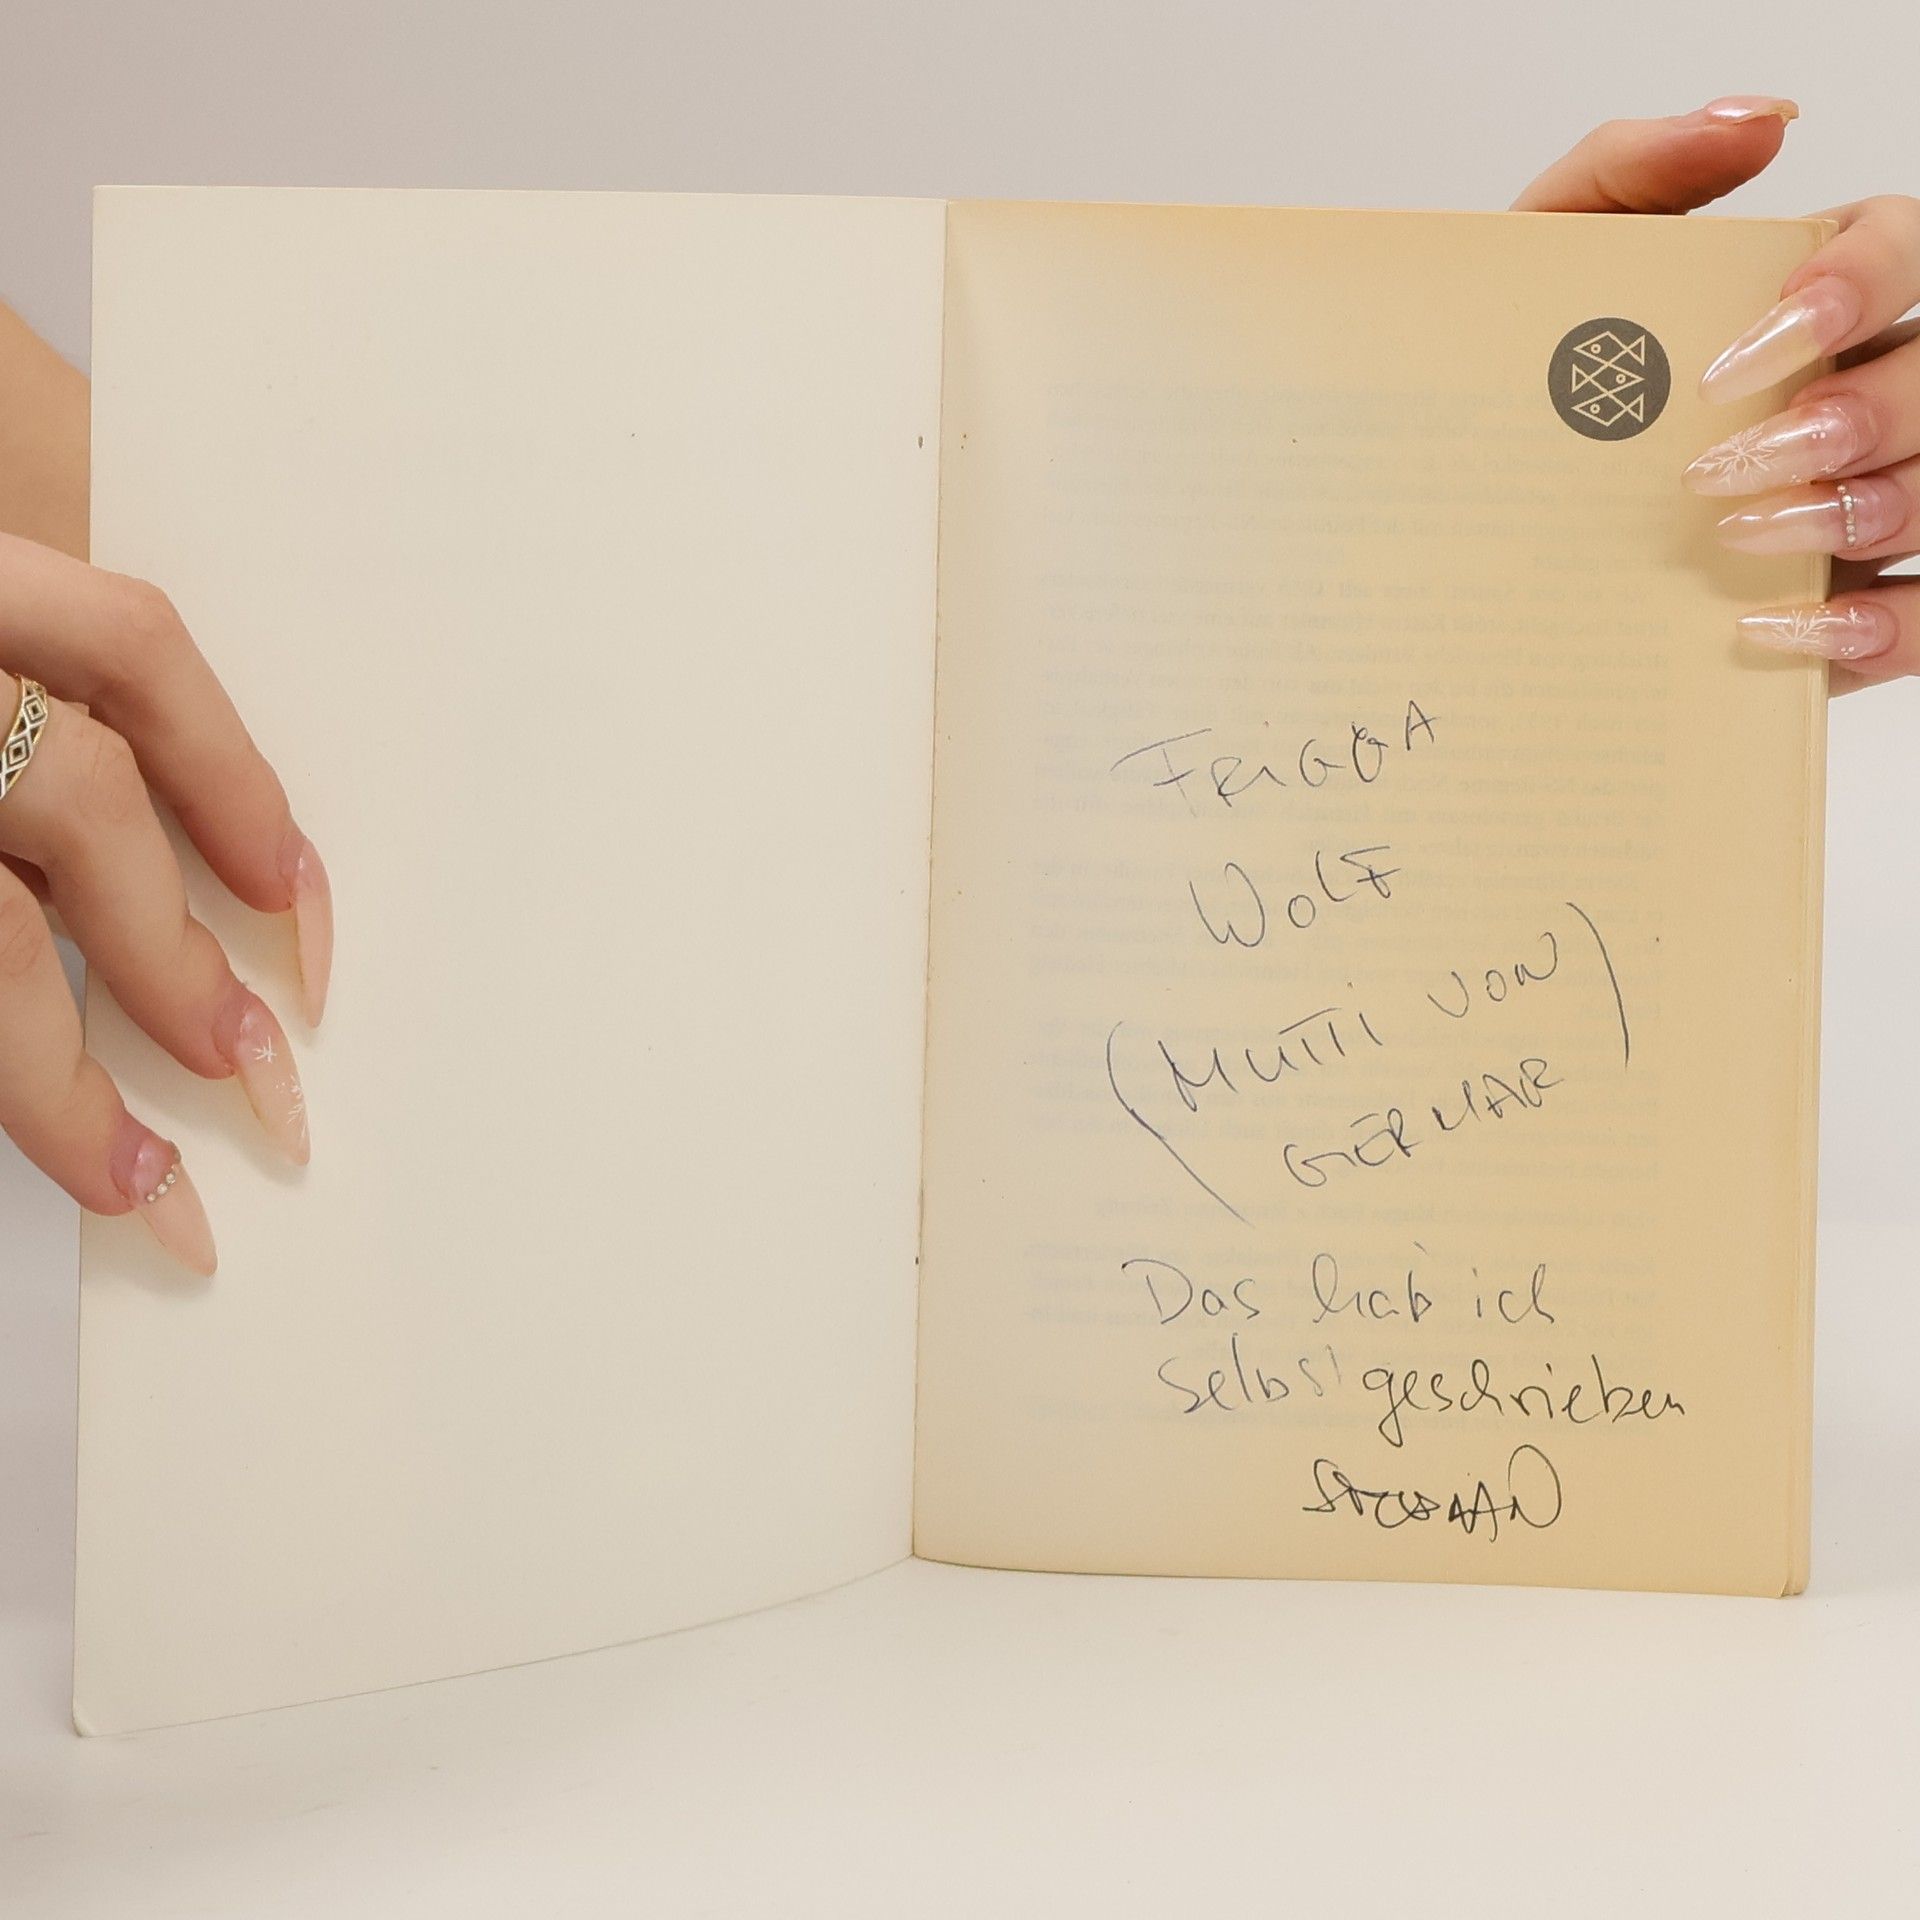 FRIGGA
WOLF
(MUTTI VON
GERMAR)
Das hab ich
selbst geschrieben